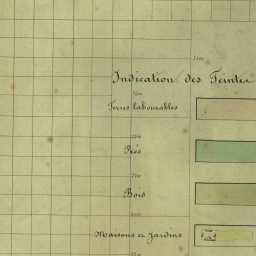 Indication des Teintes
Terres labourables
Prés
Bois
Maisons et Jardins